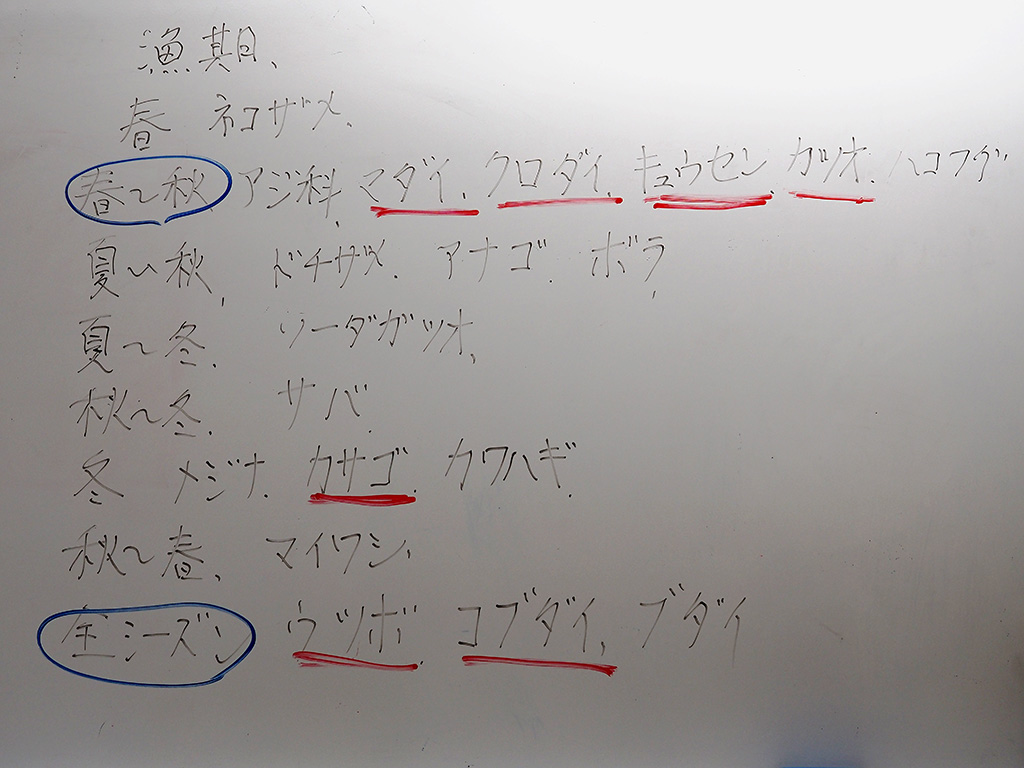 漁期、
春 ネコザメ、
春〜秋 アジ科、マダイ、クロダイ、キュウセン、カツオ、ハコフグ
夏〜秋、ドチザメ、アナゴ、ボラ、
夏〜冬、ソーダガツオ、
秋〜冬、サバ、
冬 メジナ、カサゴ、カワハギ、
秋〜春、マイワシ、
全シーズン ウツボ、コブダイ、ブダイ